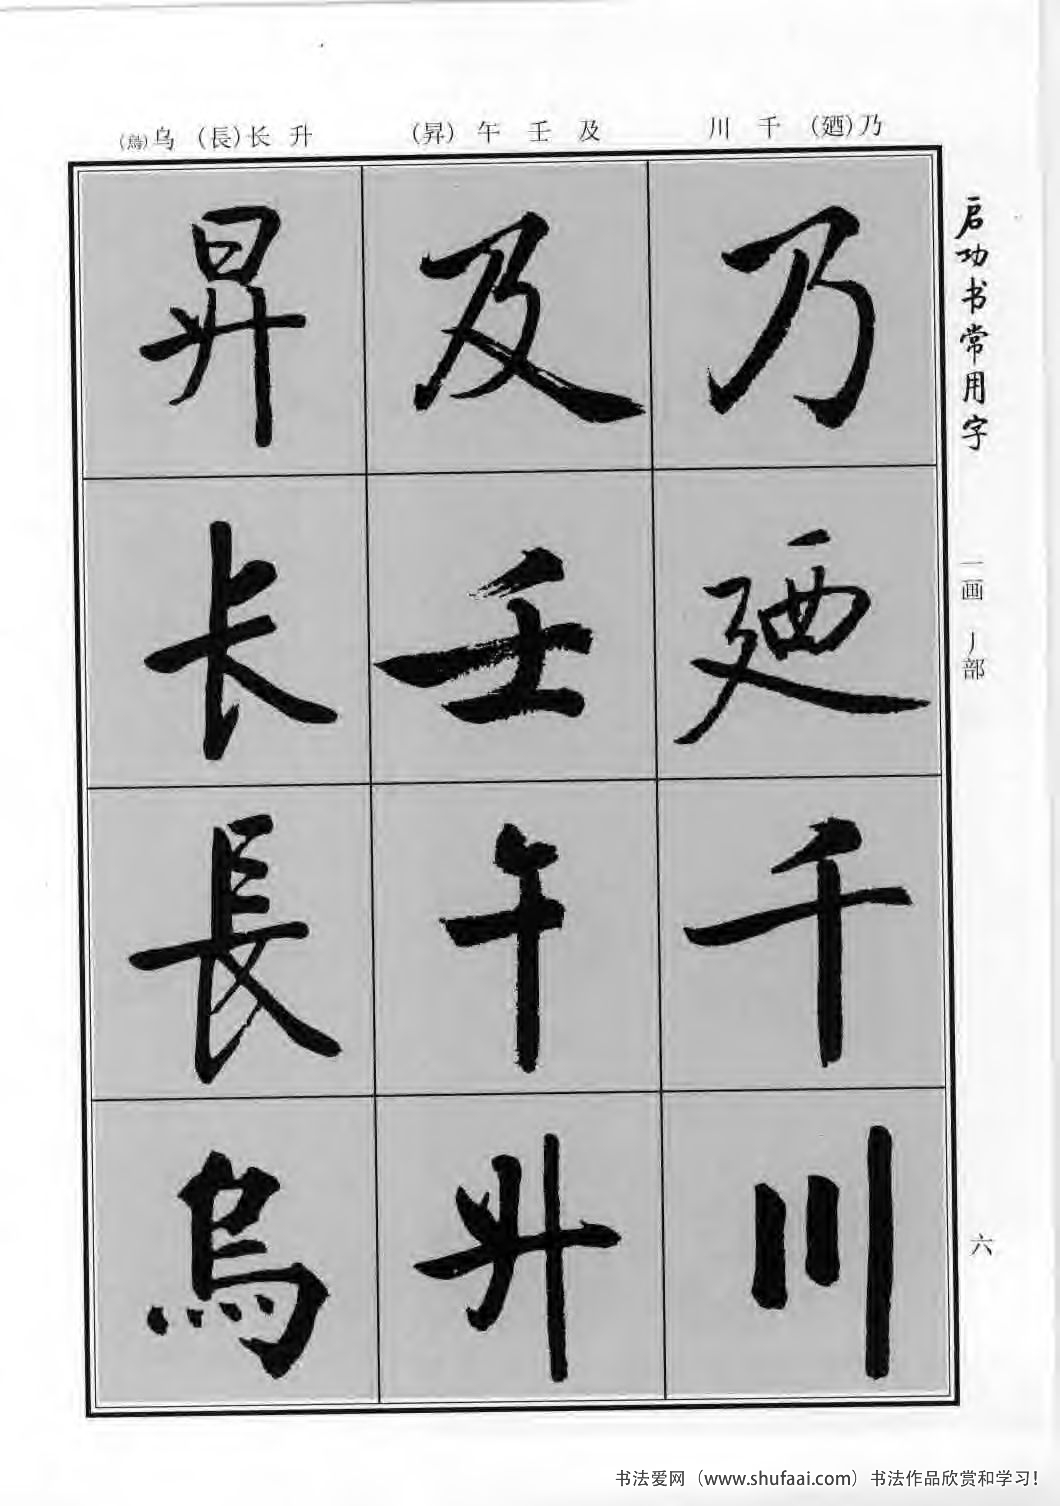 (烏)乌 (長)长 升 (昇) 午 壬 及 川 千 (廼)乃
乃
廼
千
川
及
壬
午
升
昇
长
長
烏
启功书常用字
一画 丿部
六
书法爱网（www.shufaai.com）书法作品欣赏和学习！